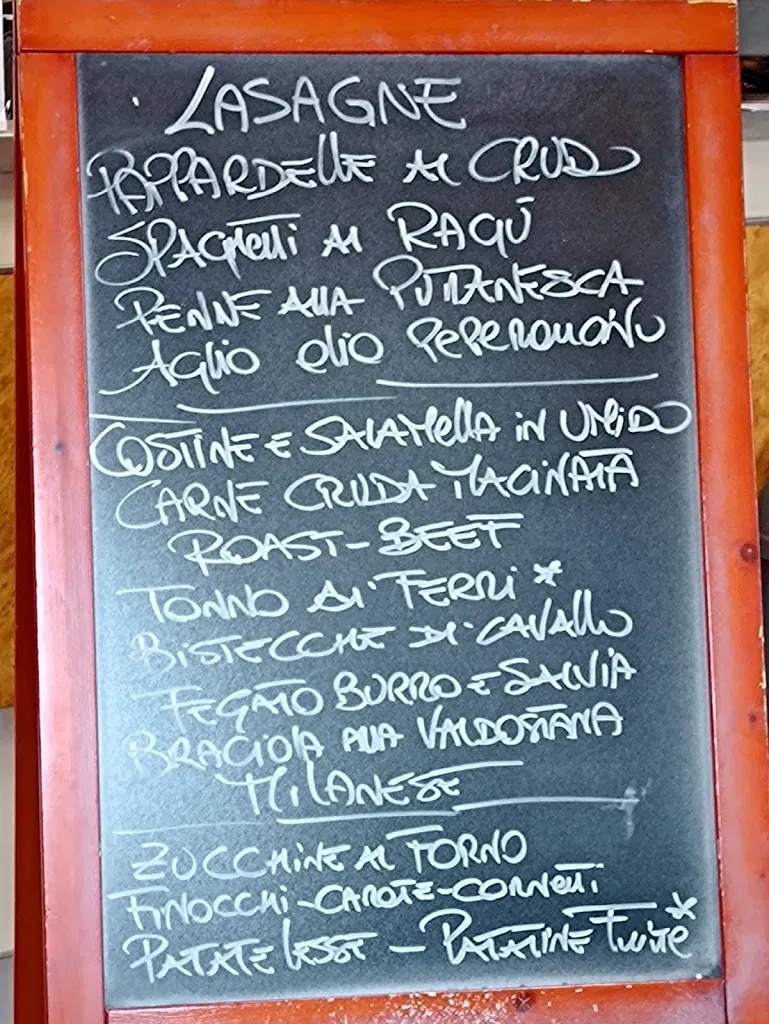 LASAGNE
PAPPARDELLE AL CRUDO
SPAGHETTI AL RAGÙ
PENNE ALLA PUTTANESCA
AGLIO OLIO PEPERONCINO
COSTINE E SALAMELLA IN UMIDO
CARNE CRUDA MACINATA
ROAST-BEEF
TONNO AI FERRI *
BISTECCHE DI CAVALLO
FEGATO BURRO E SALVIA
BRACIOLA ALLA VALDOSTANA
MILANESE
ZUCCHINE AL FORNO
FINOCCHI-CAROTE-CORNETTI
PATATE LESSE - PATATINE FRITTE *